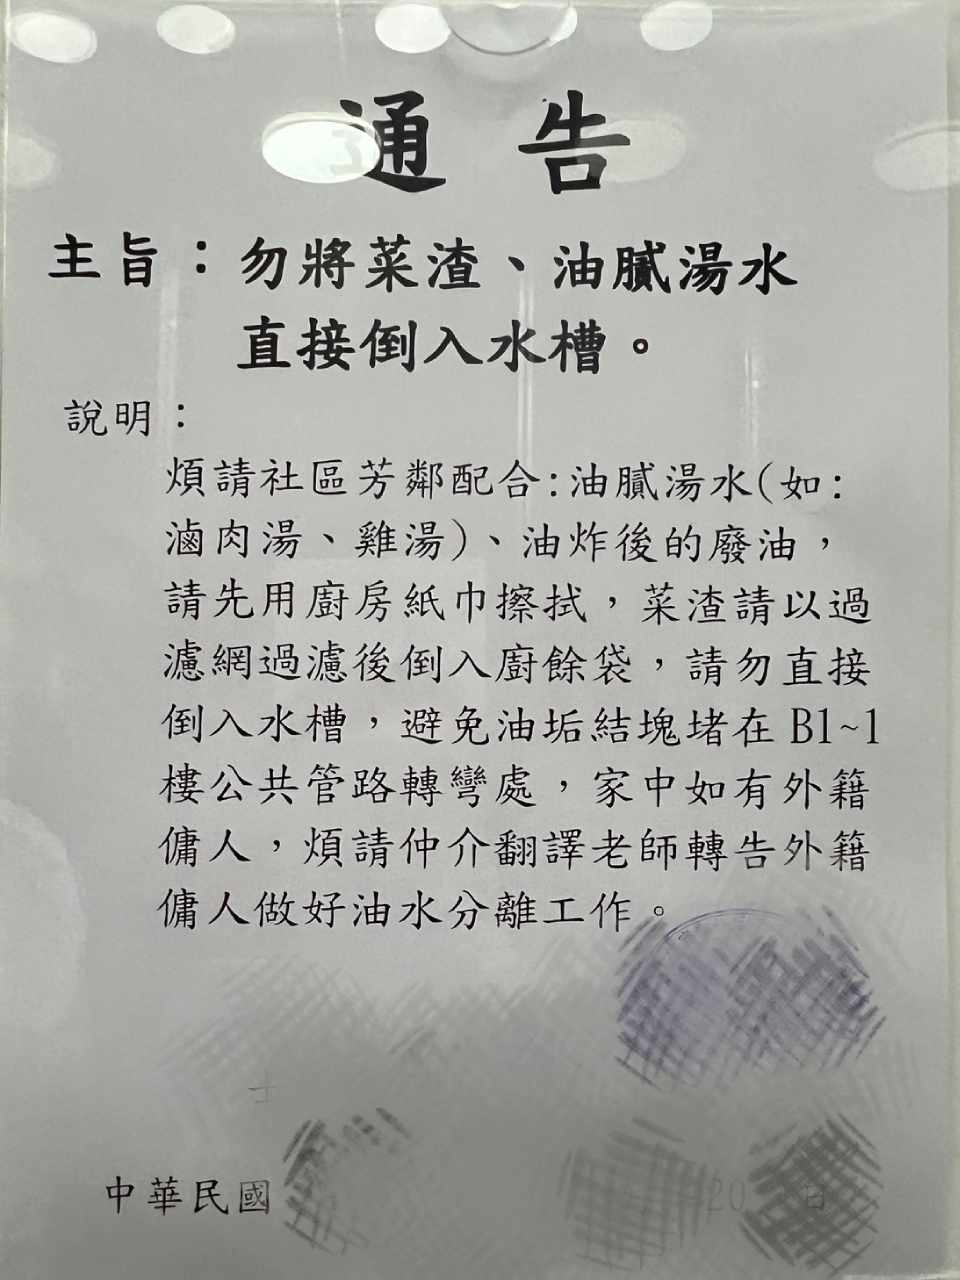 通告
主旨：勿將菜渣、油膩湯水
直接倒入水槽。
說明：
煩請社區芳鄰配合:油膩湯水(如:
滷肉湯、雞湯)、油炸後的廢油，
請先用廚房紙巾擦拭，菜渣請以過
濾網過濾後倒入廚餘袋，請勿直接
倒入水槽，避免油垢結塊堵在 B1~1
樓公共管路轉彎處，家中如有外籍
傭人，煩請仲介翻譯老師轉告外籍
傭人做好油水分離工作。
中華民國 20 日